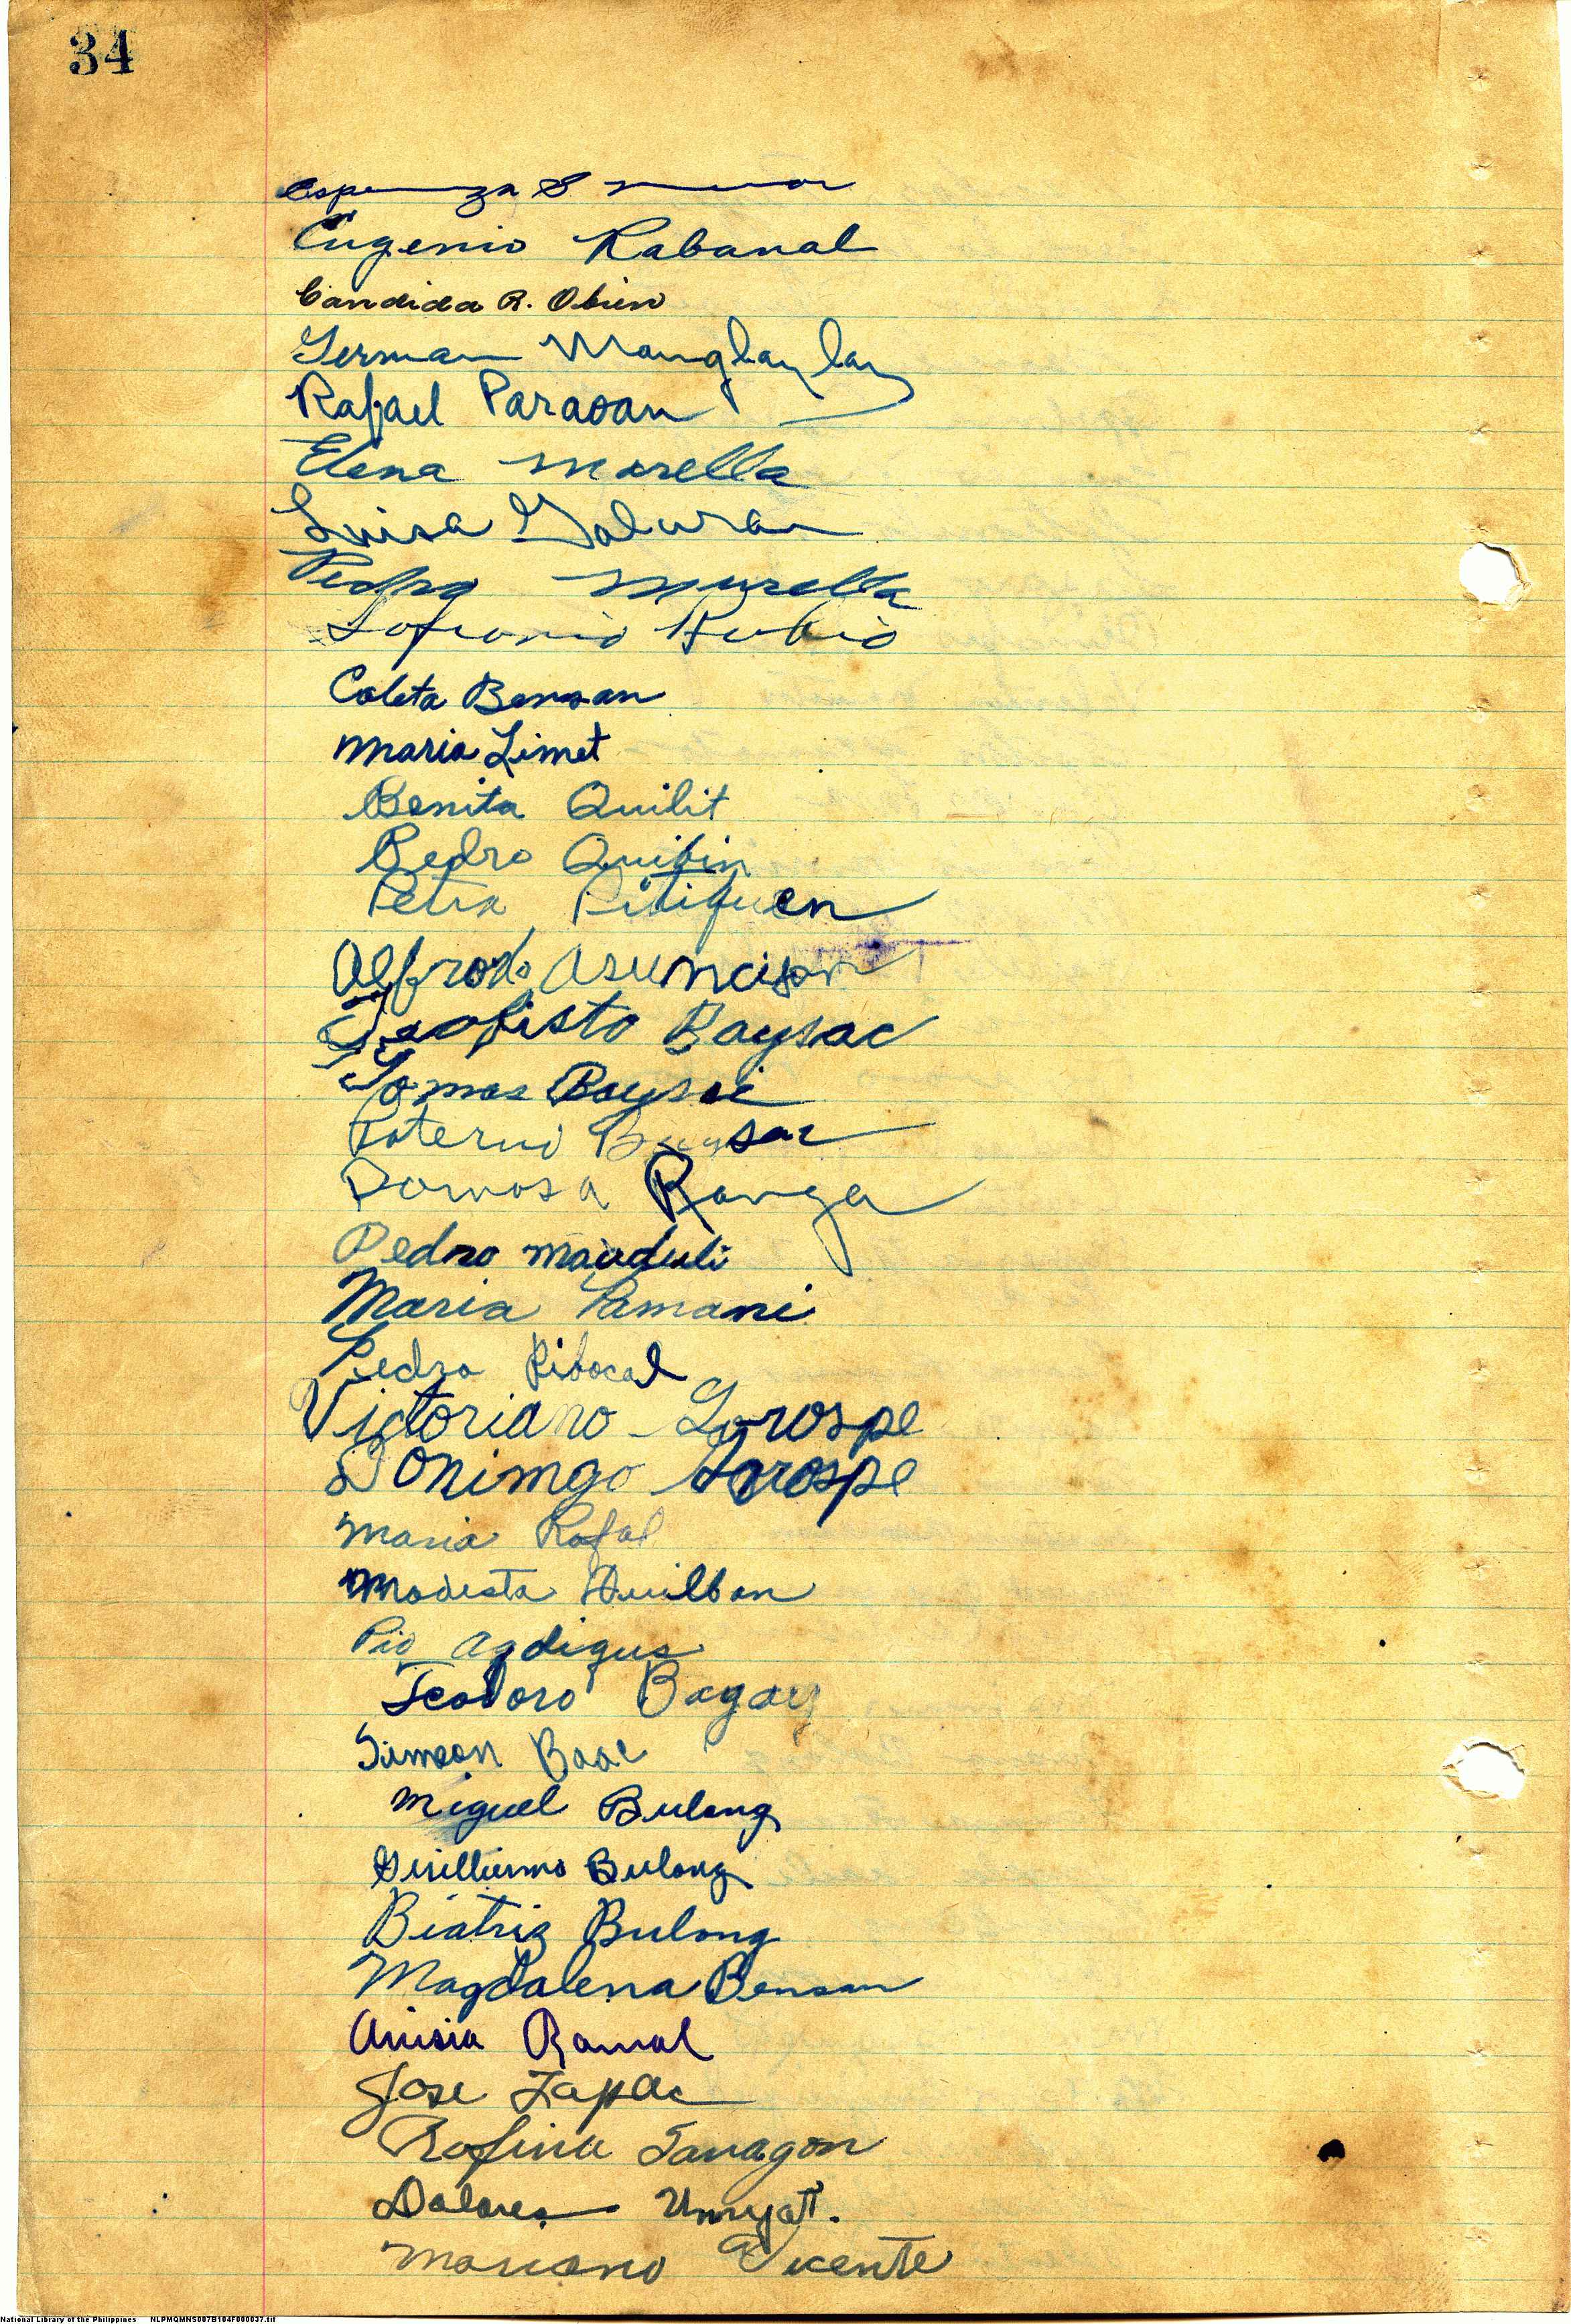 34
Eugenio Rabanal
Candida R. Obien
German Manglaylay
Rafael Paraoan
Elena Morella
Luisa Galuran
Pedro Murella
Sofronio Rubio
Coleta Bensan
Maria Limet
Benita Quilit
Pedro Quibin
Petra
Alfrodo Asuncison
Teofisto Baysac
Tomas Baysac
Baysac
Ranga
Pedno
Maria Pamani
Pedro Ribocal
Victoriano Gorospe
Donimgo Gorospe
Maria Rafal
Modesta Quilban
Pio Agdigus
Teodoro Bagay
Simeon Baac
Miguel Bulong
Guilliermo Bulong
Biatriz Bulong
Magdalena Bensan
Anisia Ramal
Jose Zapac
Rofina Sanagon
Dolores Umyat.
Mariano Vicente
National Library of the Philippines NLPMQMNS007B104F000037.tif